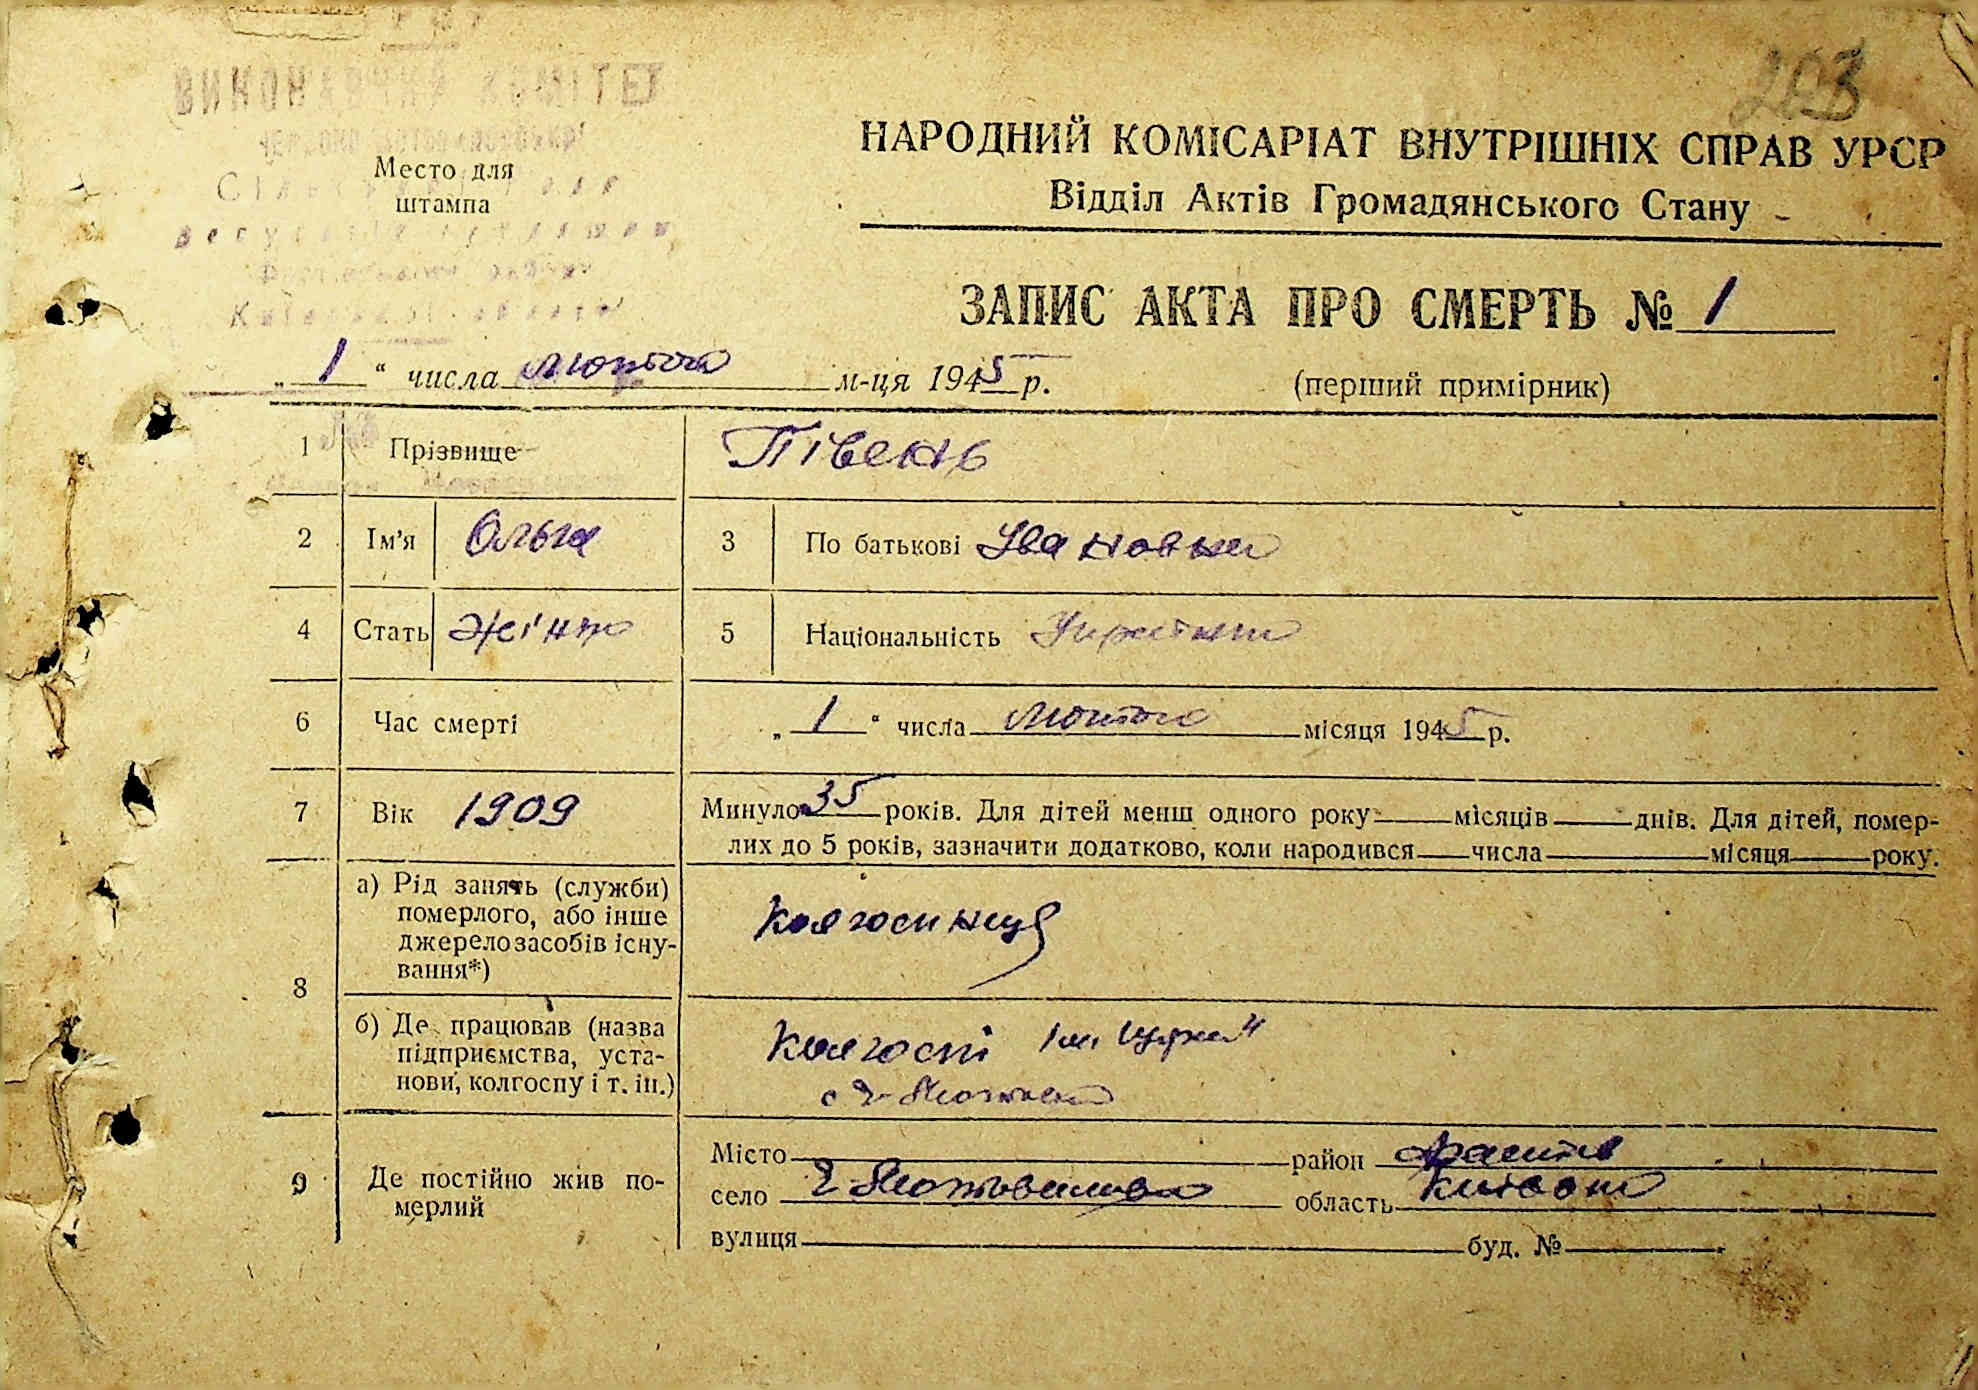 203
ВИКОНАВЧИЙ КОМІТЕТ
Место для
штампа
НАРОДНИЙ КОМІСАРІАТ ВНУТРІШНІХ СПРАВ УРСР
Відділ Актів Громадянського Стану
ЗАПИС АКТА ПРО СМЕРТЬ № 1
„1“ числа лютого м-ця 1945 р.
(перший примірник)
1 Прізвище Півень
2 Ім'я Ольга 3 По батькові Івановна
4 Стать 5 Національність
6 Час смерті „1“ числа лютого місяця 1945 р.
7 Вік 1909 Минуло 35 років. Для дітей менш одного року місяців днів. Для дітей, помер-
лих до 5 років, зазначити додатково, коли народився числа місяця року.
8 а) Рід занять (служби)
померлого, або інше
джерело засобів існу-
вання*)
Колгоспниця
б) Де працював (назва
підприємства, уста-
нови, колгоспу і т. ін.)
Колгосп ім.
9 Де постійно жив по-
мерлий
Місто район
село область
вулиця буд. №